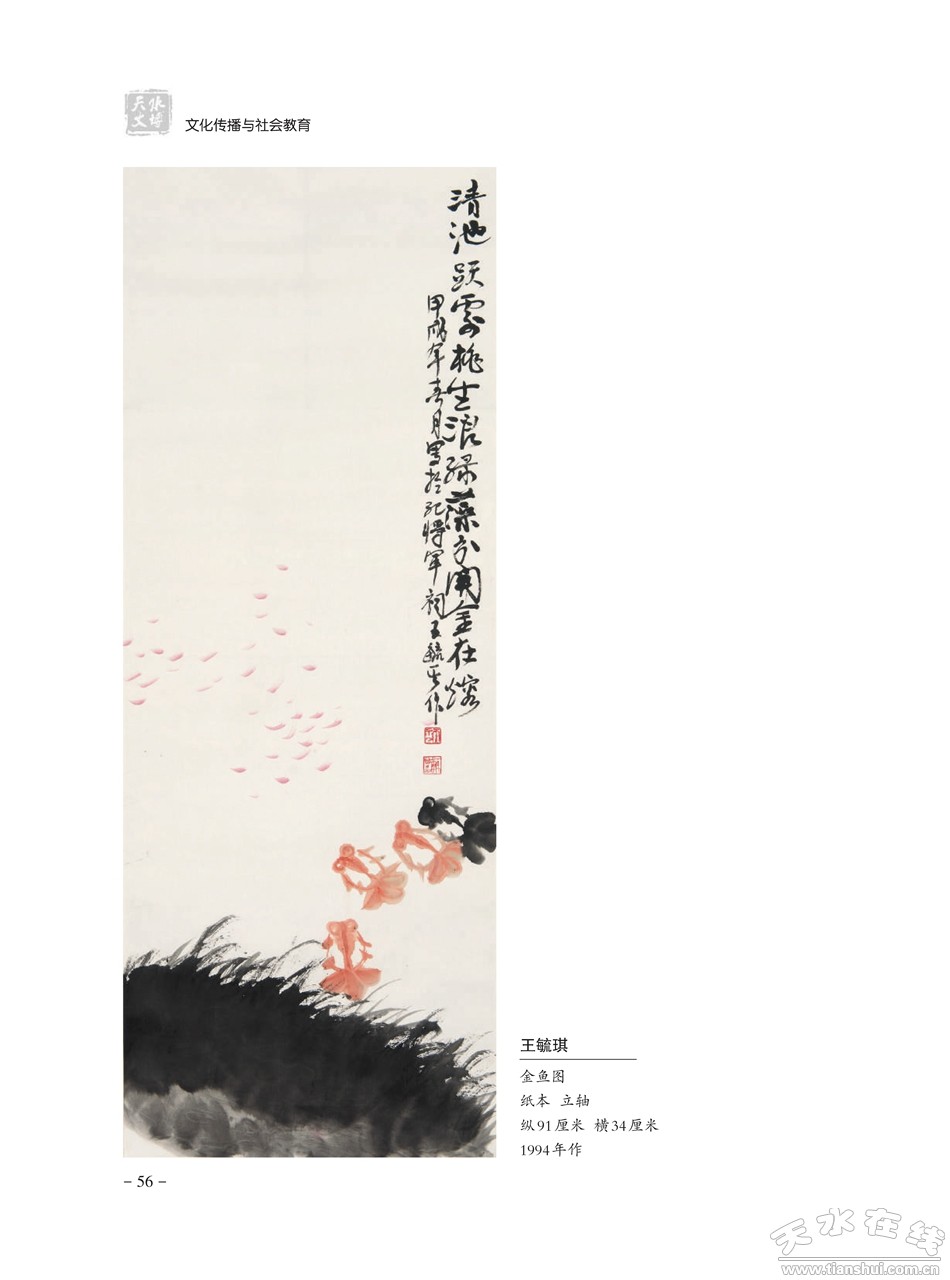 天水
文博
文化传播与社会教育
清池跃处桃生浪绿藻分开金在熔
甲戌年春月写于纪将军祠王毓琪作
王毓琪
金鱼图
纸本 立轴
纵91厘米 横34厘米
1994年作
- 56 -
天水在线
www.tianshui.com.cn